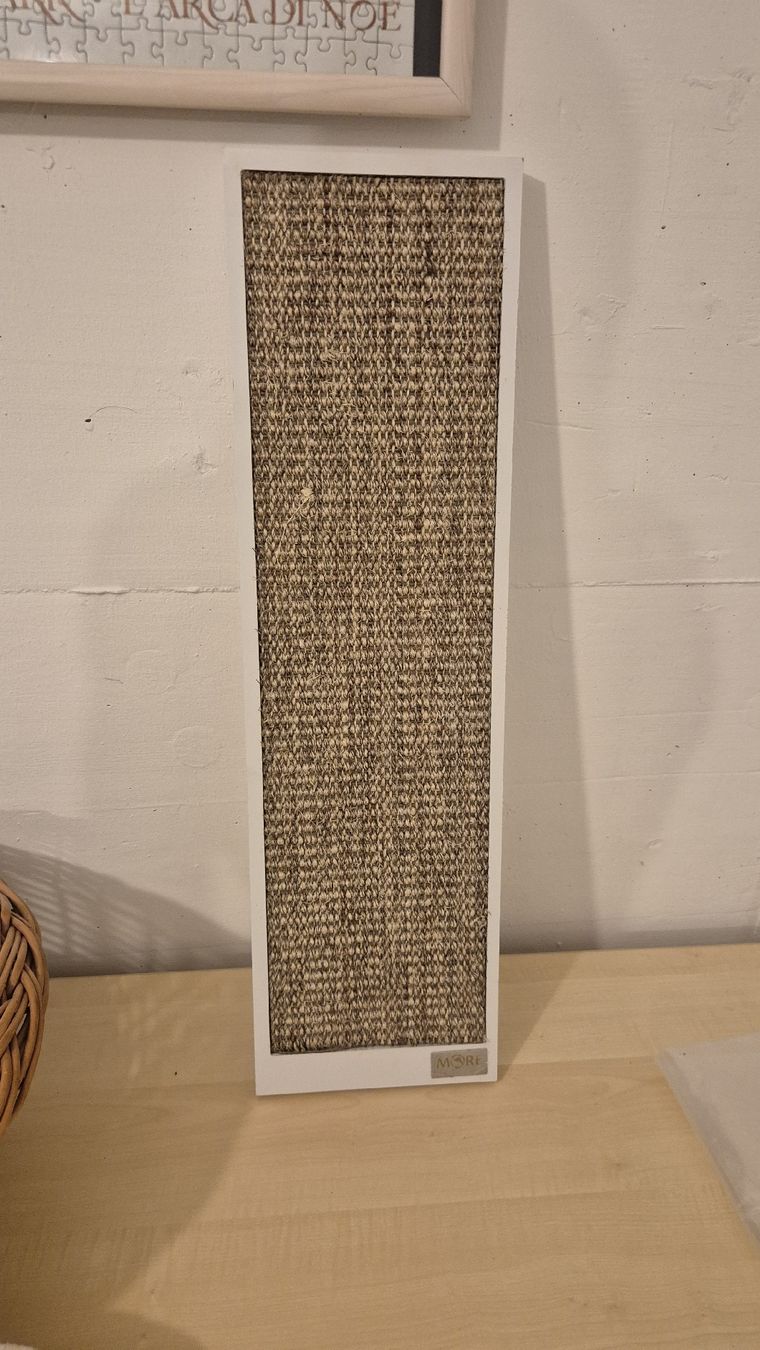 L'ARCA DI NOE
MORE